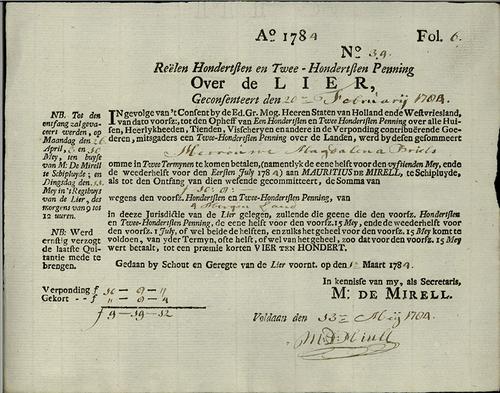 Aº 1784 Fol. 6.
Nº 34.
Reëlen Hondertsten en Twee-Hondertsten Penning
Over de LIER,
Geconsenteert den 20 February 1784.
NB. Tot den
ontfang zal gevaceert
werden, op
Maandag den 26
April, en 10
Mey, ten huyse
van M: De Mirell
te Schipluyde; en
Dingsdag den 11
Mey in 't Regthuys
van de Lier, des
morgens van 9 tot
12 uuren.
NB: Werd
ernstig verzogt
de laatste Quitantie
mede te
brengen.
INgevolge van 't Consent by de Ed. Gr. Mog. Heeren Staten van Holland ende Westvriesland,
van dato voorsz, tot den Opheff van Een Hondertsten en Twee-Hondertsten Penning over alle Huisen,
Heerlykheeden, Tienden, Visscheryen en andere in de Verponding contribuërende Goederen,
mitsgaders een Twee-Hondertsten Penning over de Landen, werd by desen gesommeert
Magdalena
omme in Twee Termynen te komen betalen, (namentlyk de eene helft voor den vyftienden Mey, ende
de weederhelft voor den Eersten July 1784) aan MAURITIUS DE MIRELL, te Schipluyde,
als tot den Ontfang van dien wesende gecommitteert, de Somma van
ƒ 10:9:
wegens den voorsz. Hondertsten en Twee-Hondertsten Penning, van
4 Morgen Land
in deeze Jurisdictie van de Lier gelegen, zullende die geene die den voorsz. Hondertsten
en Twee-Hondertsten Penning, de eene helft voor den voorsz. 15 Mey, ende de weederhelft voor
den voorsz. 1 July, of wel beide de helften, en zulks het geheel voor den voorsz. 15 Mey komt te
voldoen, van yder Termyn, ofte helft, of wel van het geheel, zoo dat voor den voorsz. 15 Mey
wert betaalt, tot een præmie korten VIER TEN HONDERT.
Gedaan by Schout en Geregte van de Lier voornt. op den 1 Maart 1784.
In kennisse van my, als Secretaris,
M: DE MIRELL.
Verponding ƒ 10 - 9 - 11
Gekort - - ƒ
ƒ 9 - 19 - 12
Voldaan den 13 Meij 1784.